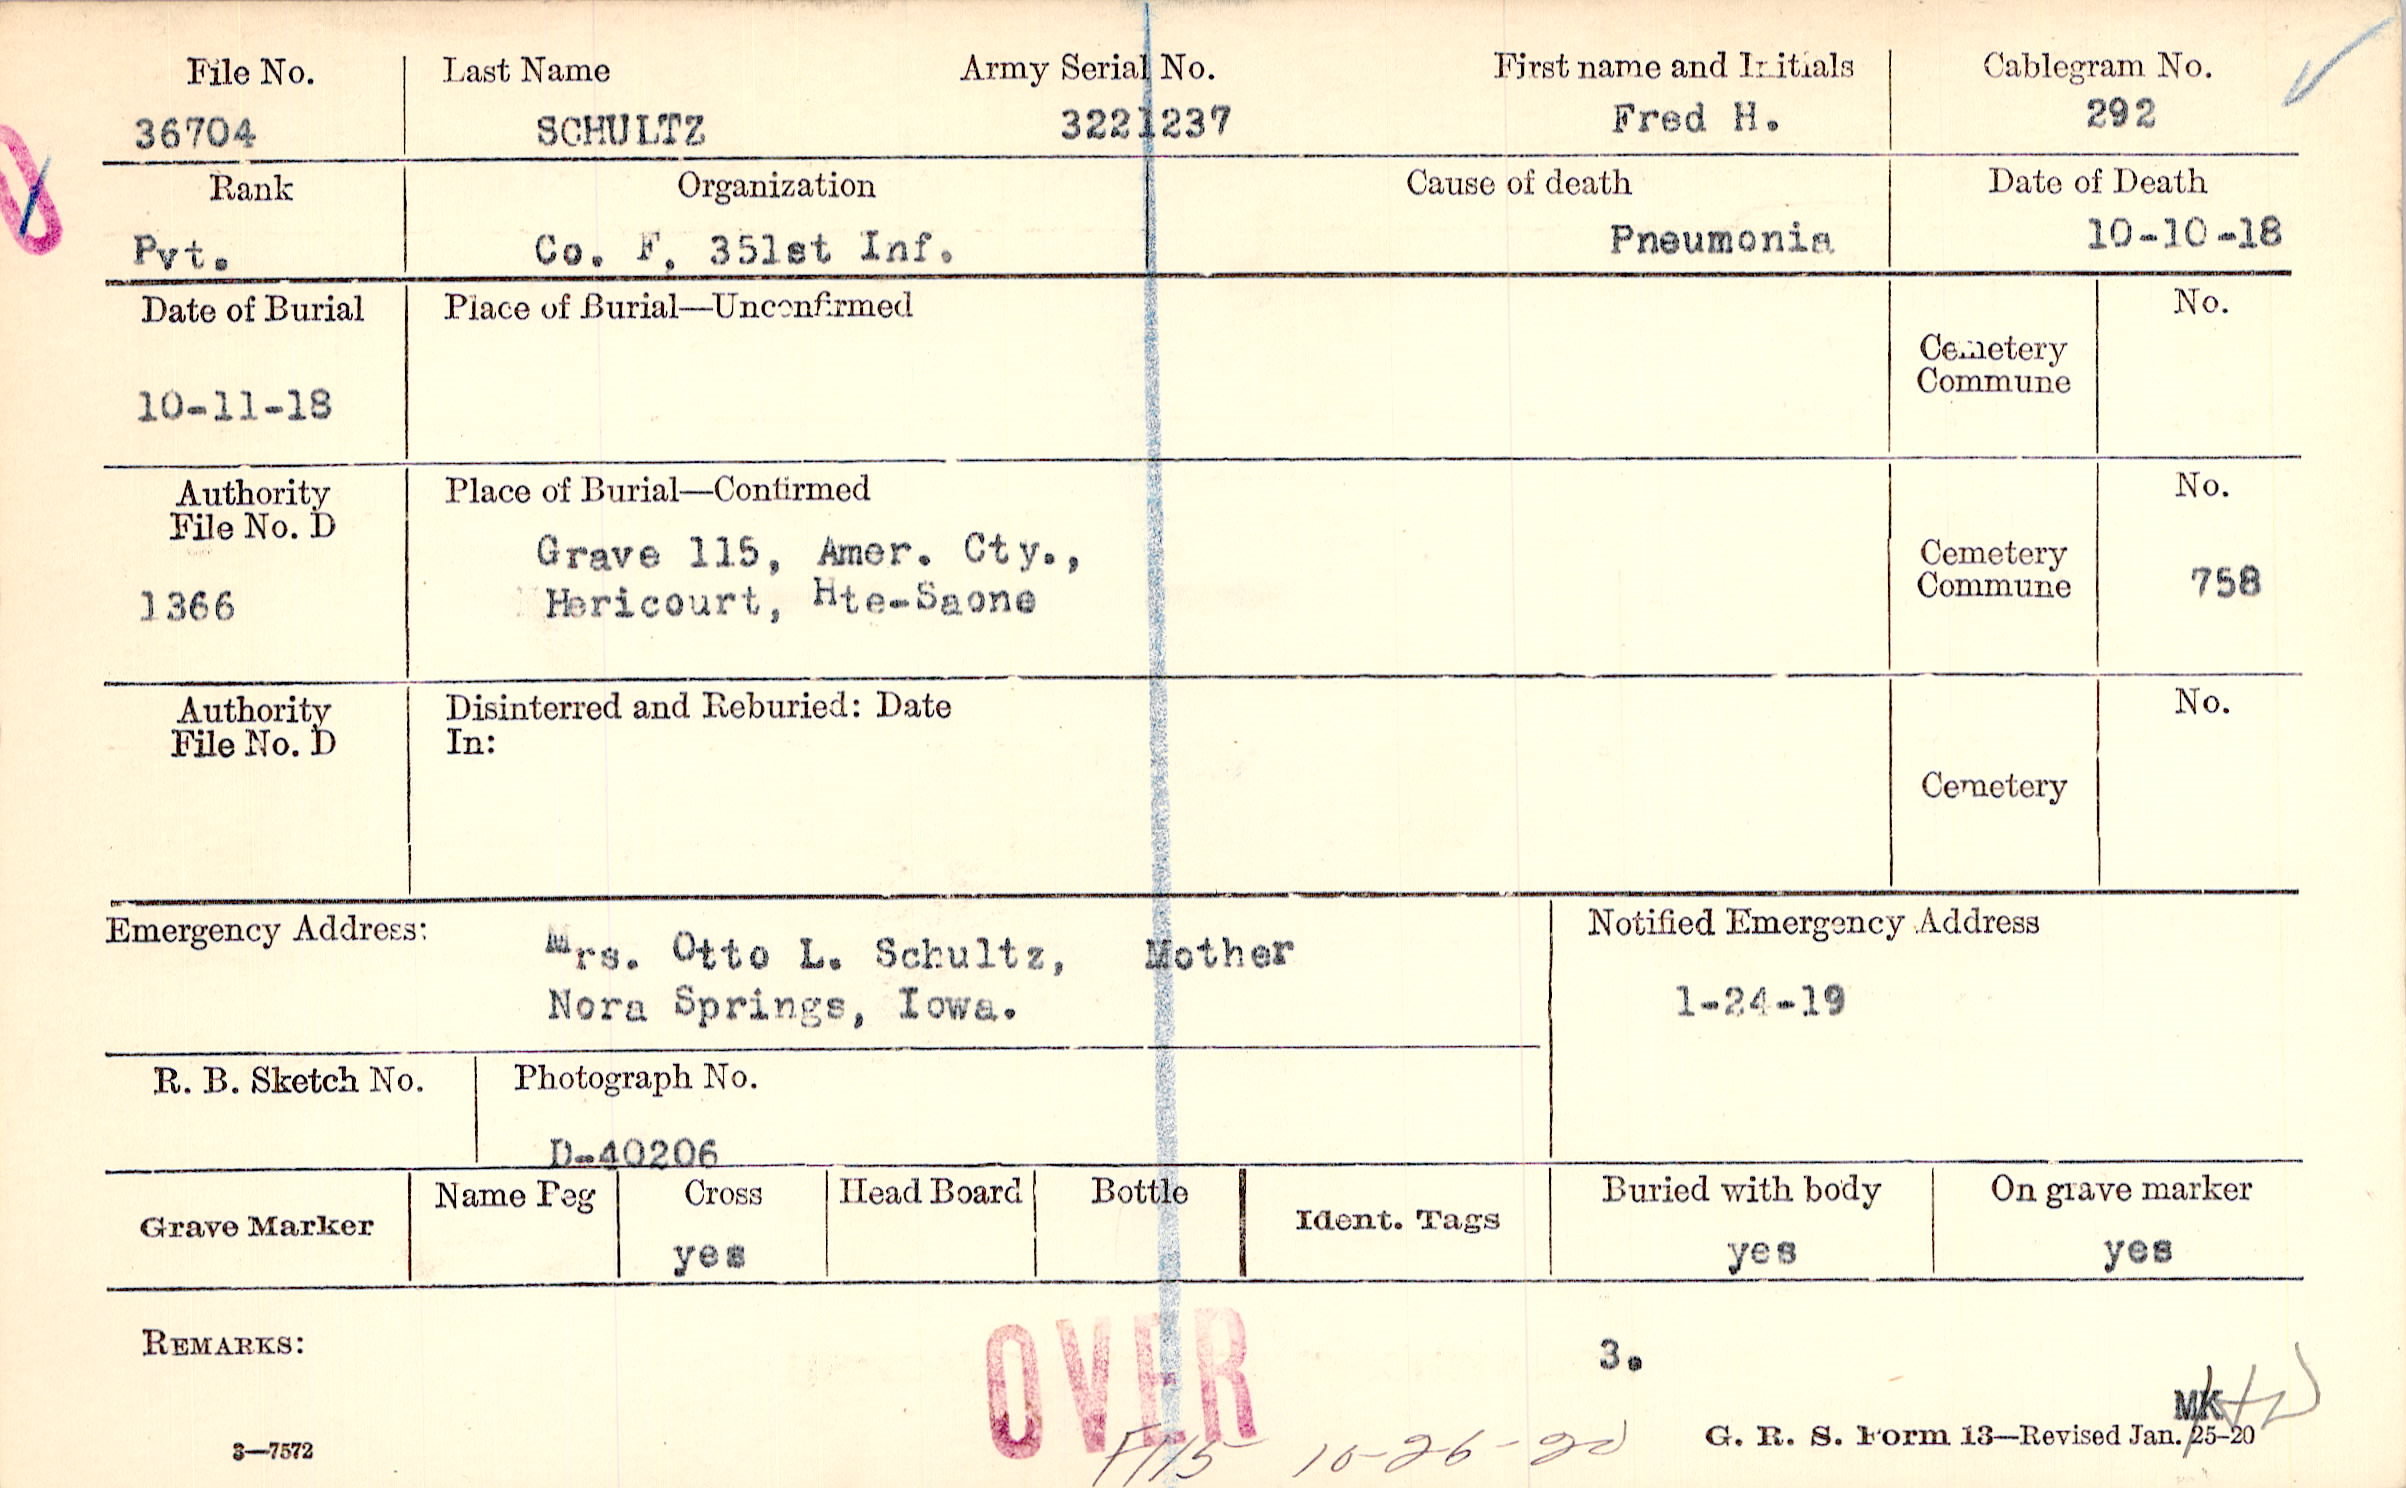 File No. Last Name Army Serial No. First name and Initials Cablegram No.
36704 SCHULTZ 3221237 Fred H. 292
Rank Organization Cause of death Date of Death
Pvt. Co. F, 351st Inf. Pneumonia 10-10-18
Date of Burial Place of Burial—Unconfirmed No.
Cemetery
Commune
10-11-18
Authority Place of Burial—Confirmed No.
File No. D
Grave 115, Amer. Cty., Cemetery
1366 Hericourt, Hte-Saone Commune 758
Authority Disinterred and Reburied: Date No.
File No. D In:
Cemetery
Emergency Address: Notified Emergency Address
Mrs. Otto L. Schultz, Mother
Nora Springs, Iowa. 1-24-19
R. B. Sketch No. Photograph No.
D-40206
Grave Marker Name Peg Cross Head Board Bottle Ident. Tags Buried with body On grave marker
yes yes yes
REMARKS: 3.
OVER
MK
3—7572 G. R. S. Form 13—Revised Jan. 25-20
10-26-20